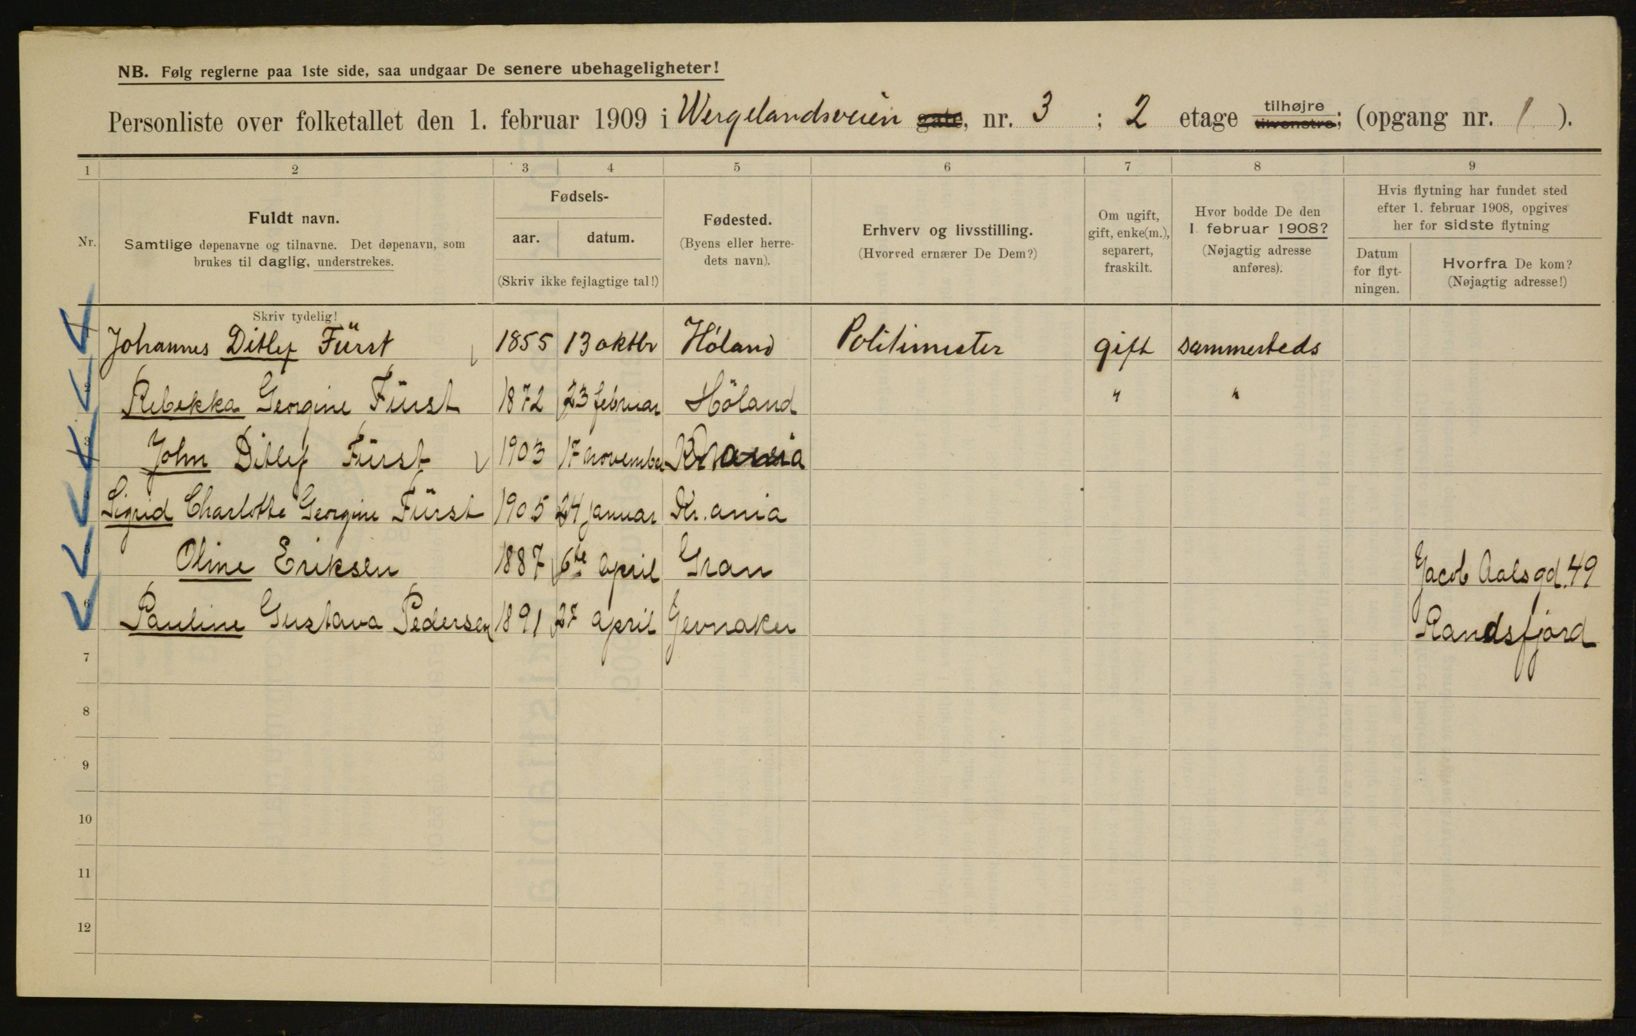 NB. Følg reglerne paa 1ste side, saa undgaar De senere ubehageligheter!
Personliste over folketallet den 1. februar 1909 i Wergelandsveien gate, nr. 3 ; 2 etage tilhøjre tilvenstre; (opgang nr. 1 ).
1 2 3 4 5 6 7 8 9
Nr.
Fuldt navn.
Samtlige døpenavne og tilnavne. Det døpenavn, som
brukes til daglig, understrekes.
Fødsels-
aar. datum.
(Skriv ikke fejlagtige tal!)
Fødested.
(Byens eller herre-
dets navn).
Erhverv og livsstilling.
(Hvorved ernærer De Dem?)
Om ugift,
gift, enke(m.),
separert,
fraskilt.
Hvor bodde De den
1. februar 1908?
(Nøjagtig adresse
anføres).
Hvis flytning har fundet sted
efter 1. februar 1908, opgives
her for sidste flytning
Datum
for flyt-
ningen.
Hvorfra De kom?
(Nøjagtig adresse!)
Skriv tydelig!
Johannes Ditlef Fürst 1855 13 oktbr Höland Politimester gift sammesteds
2 Rebekka Georgine Fürst 1872 23 februar Höland " "
3 John Ditlef Fürst 1903 17 november Kr.ania
4 Sigrid Charlotte Georgine Fürst 1905 24 januar Kr.ania
5 Oline Eriksen 1887 6te april Gran Jacob Aalsgd. 49
6 Pauline Gustava Pedersen 1891 27 april Jevnaker Randsfjord
7
8
9
10
11
12